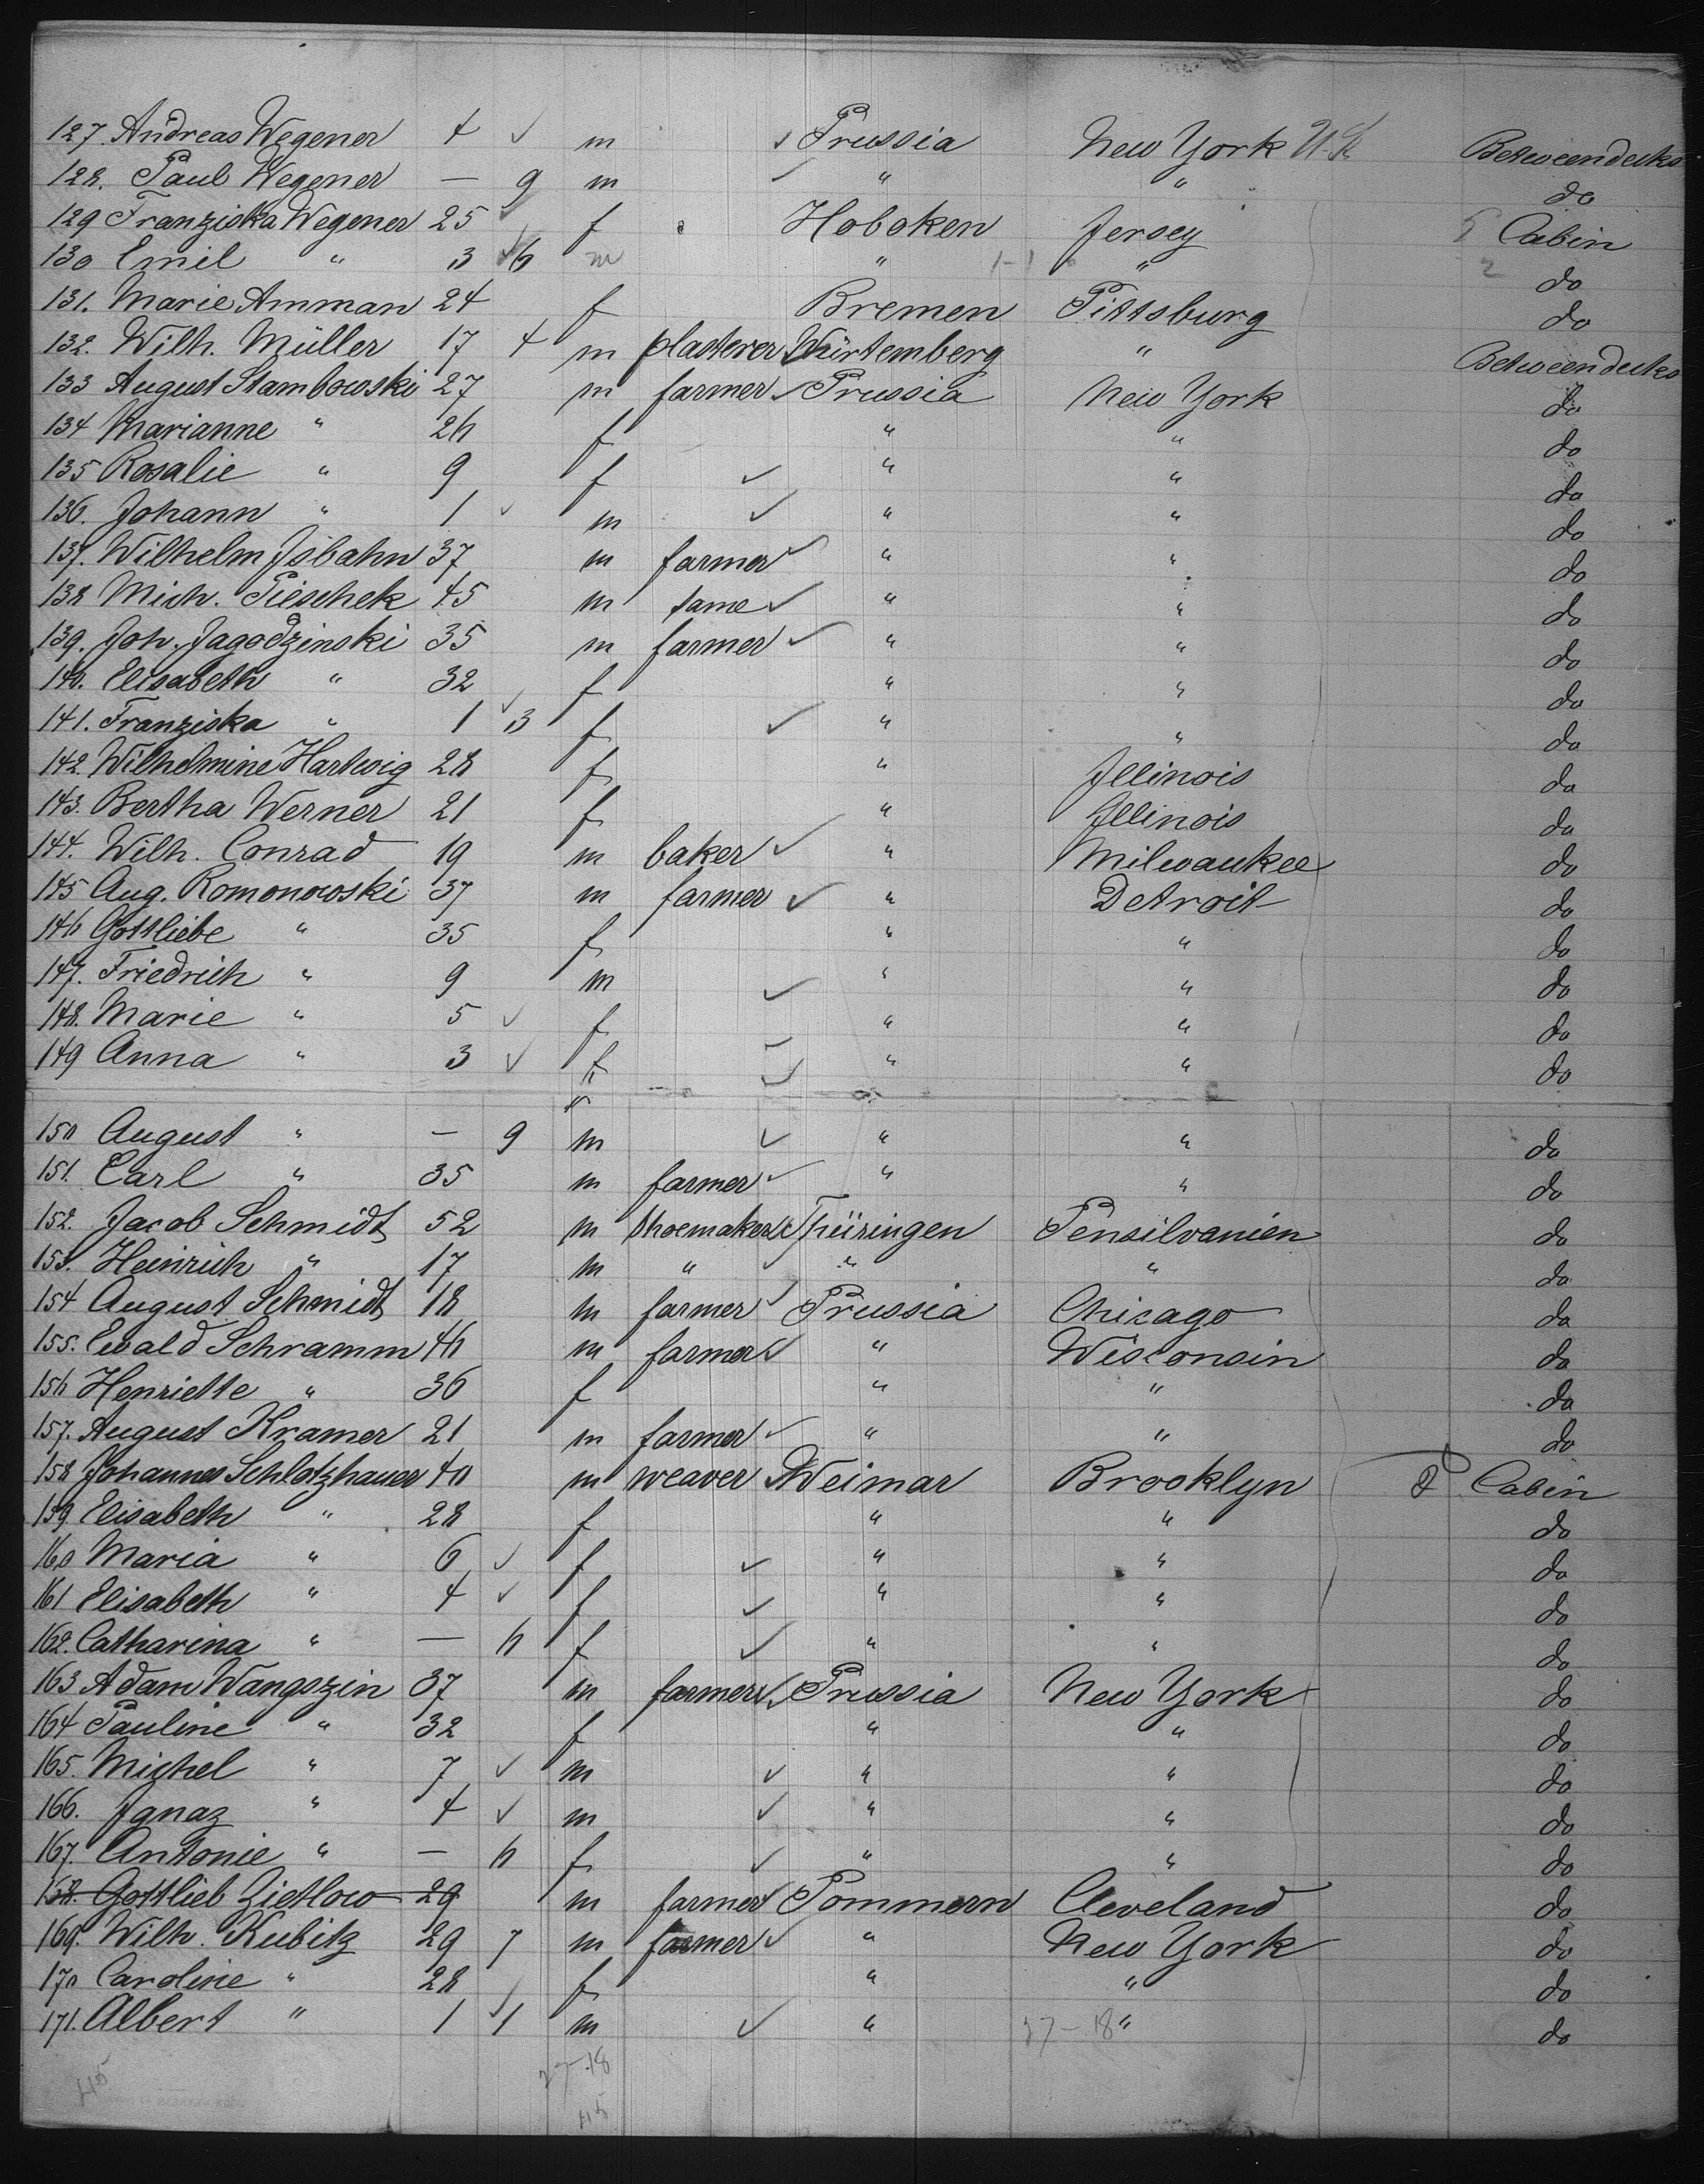 127. Andreas Wegener 4 ✓ m ✓ Prussia New York U.S. Betweendecks
128. Paul Wegener — 9 m ✓ " " do
129 Franziska Wegener 25 f Hoboken Jersey Cabin
130 Emil " 3 6 m " " do
131. Marie Amman 24 f Bremen Pittsburg do
132. Wilh. Müller 17 4 m plasterer Würtemberg " Betweendecks
133 August Stambowski 27 m farmer ✓ Prussia New York do
134 Marianne " 26 f " " do
135 Rosalie " 9 f ✓ " " do
136. Johann " 1 ✓ m ✓ " " do
137. Wilhelm Jsbahn 37 m farmer ✓ " " do
138 Mich. Pieschek 45 m same ✓ " " do
139. Joh. Jagodzinski 35 m farmer ✓ " " do
140. Elisabeth " 32 f " " do
141. Franziska " 1 ✓ 3 f ✓ " " do
142. Wilhelmine Hartwig 28 f " Jllinois do
143. Bertha Werner 21 f " Jllinois do
144. Wilh. Conrad 19 m baker ✓ " Milwaukee do
145 Aug. Romonowski 37 m farmer ✓ " Detroit do
146 Gottliebe " 35 f " " do
147. Friedrich " 9 m ✓ " " do
148. Marie " 5 ✓ f " " do
149 Anna " 3 ✓ f ✓ " " do
150 August " — 9 m ✓ " " do
151. Carl " 35 m farmer ✓ " " do
152. Jacob Schmidt 52 m shoemaker Thüringen Pensilvanien do
153. Heinrich " 17 m " ✓ " " do
154 August Schmidt 18 m farmer ✓ Prussia Chicago do
155. Ewald Schramm 46 m farmer ✓ " Wisconsin do
156 Henriette " 36 f " " do
157. August Kramer 21 m farmer ✓ " " do
158 Johannes Schlotzhauer 40 m weaver Weimar Brooklyn Cabin
159 Elisabeth " 28 f " " do
160 Maria " 6 ✓ f ✓ " " do
161 Elisabeth " 4 ✓ f ✓ " " do
162. Catharina " — 6 f ✓ " " do
163 Adam Wangszin 37 m farmer ✓ Prussia New York do
164 Pauline " 32 f " " do
165. Michel " 7 ✓ m ✓ " " do
166. Jgnaz " 4 ✓ m ✓ " " do
167. Antonie " — 6 f ✓ " " do
158. Gottlieb Zietlow 29 m farmer ✓ Pommern Cleveland do
169. Wilh. Kubitz 29 7 m farmer ✓ " New York do
170 Caroline " 28 f " " do
171. Albert " 1 ✓ 1 m ✓ " 27-18 " do
27-18
45 45